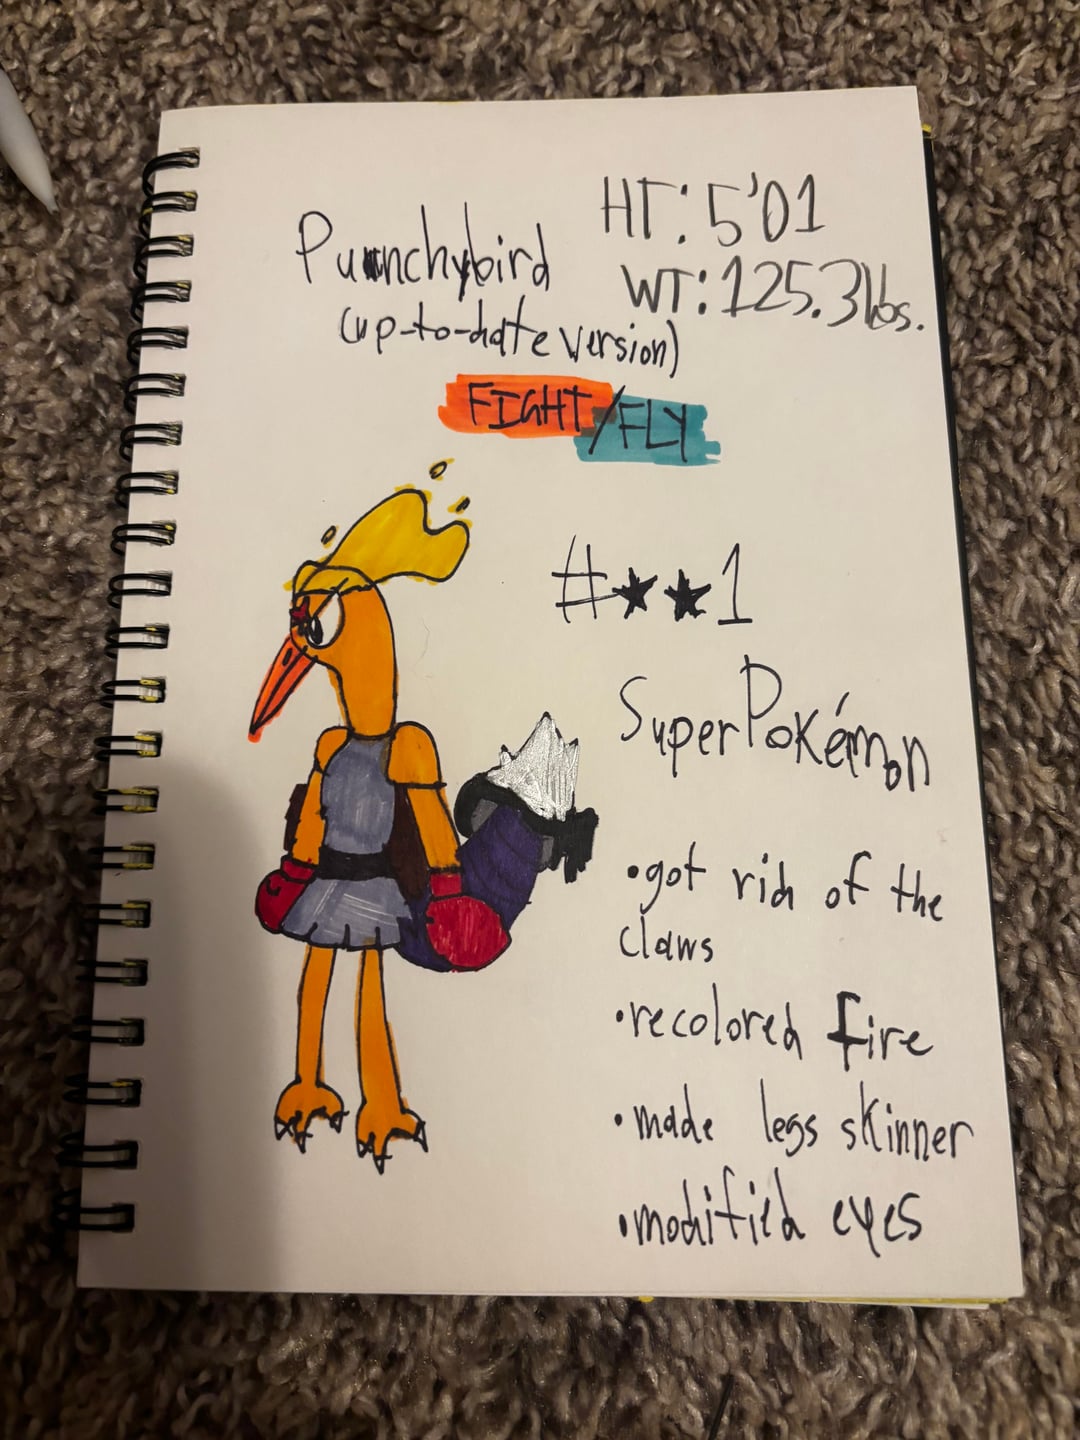 Punchybird
(up-to-date version)
HT: 5'01
WT: 125.3lbs.
FIGHT/FLY
#★★1
SuperPokémon
•got rid of the
claws
•recolored fire
•made legs skinner
•modified eyes